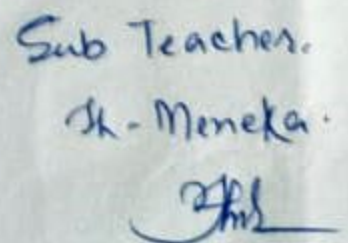 Sub Teacher.
Th - Meneka.